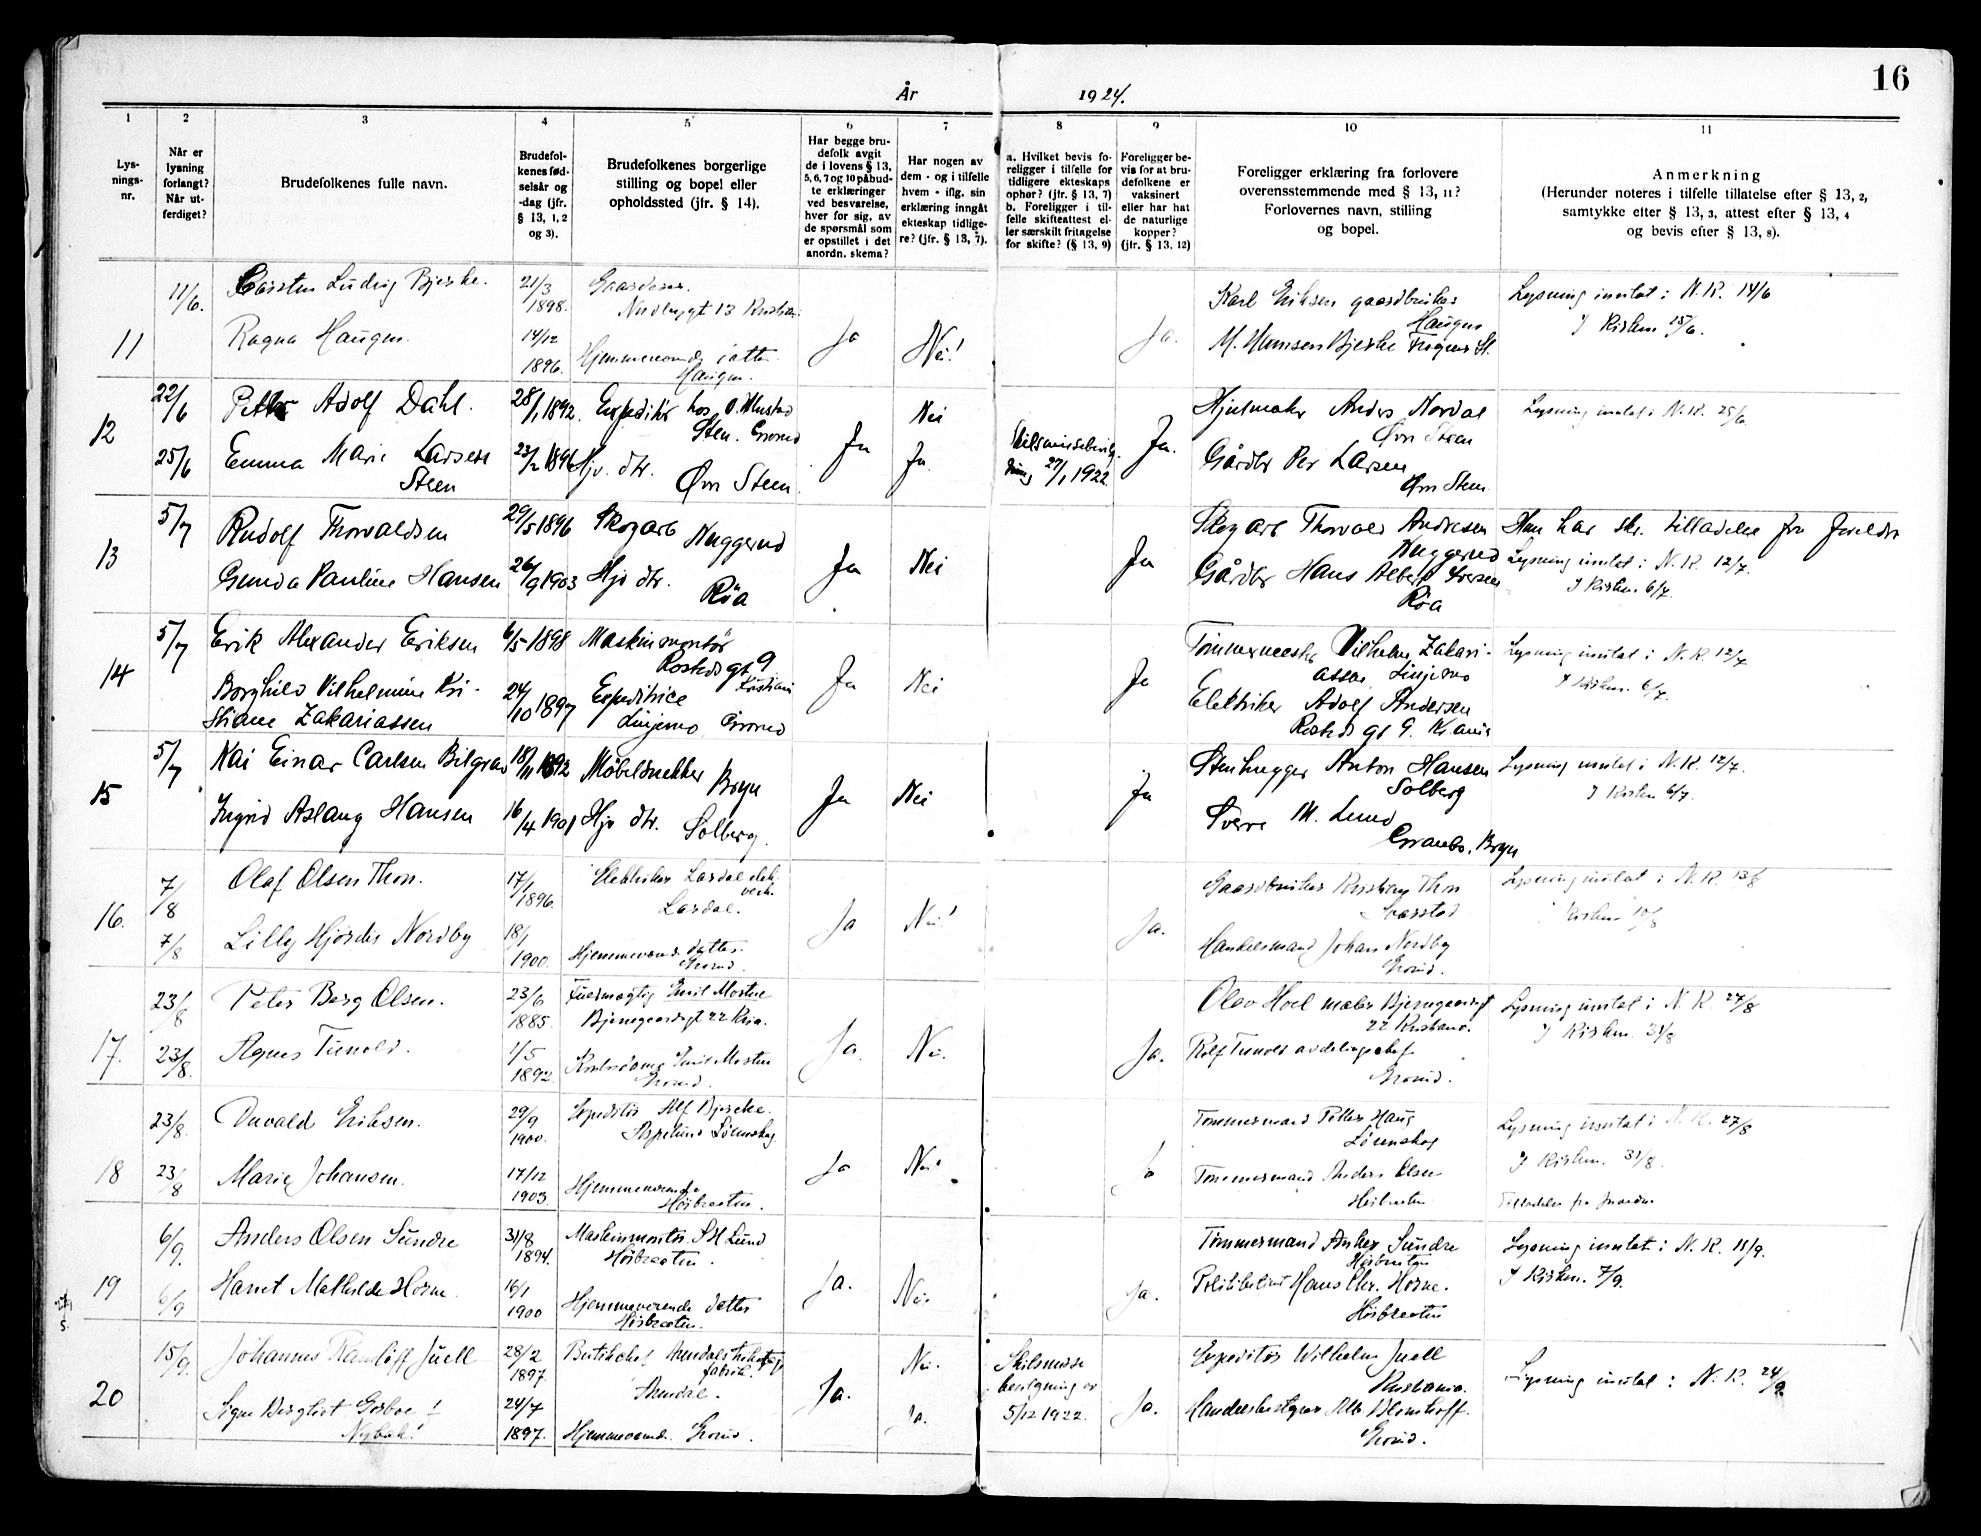 16
År 1924.
1 2 3 4 5 6 7 8 9 10 11
Lys-
nings-
nr.
Når er
lysning
forlangt?
Når ut-
ferdiget?
Brudefolkenes fulle navn.
Brudefol-
kenes fød-
selsår og
-dag (jfr.
§ 13, 1, 2
og 3).
Brudefolkenes borgerlige
stilling og bopel eller
opholdssted (jfr. § 14).
Har begge bru-
defolk avgit
de i lovens § 13,
5, 6, 7 og 10 påbud-
te erklæringer
ved besvarelse,
hver for sig, av
de spørsmål som
er opstillet i det
anordn. skema?
Har nogen av
dem - og i tilfelle
hvem - iflg. sin
erklæring inngåt
ekteskap tidlige-
re? (jfr. § 13, 7).
a. Hvilket bevis fo-
religger i tilfelle for
tidligere ekteskaps
ophør? (jfr. § 13, 7)
b. Foreligger i til-
felle skifteattest el-
ler særskilt fritagelse
for skifte? (§ 13, 9)
Foreligger be-
vis for at bru-
defolkene er
vaksinert
eller har hat
de naturlige
kopper?
(jfr. § 13, 12)
Foreligger erklæring fra forlovere
overensstemmende med § 13, 11?
Forlovernes navn, stilling
og bopel.
Anmerkning
(Herunder noteres i tilfelle tillatelse efter § 13, 2,
samtykke efter § 13, 3, attest efter § 13, 4
og bevis efter § 13, 8).
11
11/6. Karsten Ludvig Bjerke. 21/3 1898.
Ragna Haugen. 14/12 1896. Hjemmeværende datter
Haugen.
Ja Nei! Ja.
Karl Eriksen gaardbruker
Haugen
Lysning inntat i N. R. 14/6
I Kirken 15/6.
12
22/6 Petter Adolf Dahl. 28/1 1892. Expeditør hos O. Mustad
Sten. Grorud
25/6 Emma Marie Larsen
Steen
23/2 1896 Hjv. dtr. Øvre Steen.
Ja Nei
Ja.
27/1 1922 Ja.
Hjulmaker Anders Nordal
Øvre Steen
Gårdbr Per Larsen
Øvre Steen
Lysning inntat i N. R. 25/6
13
5/7 Rudolf Thorvaldsen 29/5 1896 Skogarb Nuggerud
Gunda Pauline Hansen 26/9 1903 Hjv dtr. Röa
Ja Nei Ja
Skogarb Thorvald Andresen
Nuggerud
Gårdbr Hans Albert Iversen
Röa
Hun har skr. tilladelse fra foreldre
Lysning inntat i N. R. 12/7.
I Kirken 6/7.
14
5/7 Erik Alexander Eriksen 6/5-1898 Maskinmontör
Rosteds gt 9
Kristiania
Borghild Vilhelmine Kri-
stiane Zakariassen
24/10 1897 Expeditrice
Linjemo, Grorud
Ja Nei Ja
Tömmermester Vilhelm Zakari-
assen, Linjemo
Elektriker Adolf Andersen
Rosteds gt 9. Kr.ania
Lysning inntat i N. R. 12/7
I Kirken. 6/7.
15
5/7 Kai Einar Carlsen Bilgrav 18/11 1892 Möbelsnekker Bryn
Ingrid Aslaug Hansen 16/4 1901 Hjv dtr. Solberg.
Ja Nei Ja
Stenhugger Anton Hansen
Solberg
Sverre M. Lund
Granbo, Bryn
Lysning inntat i N. R. 12/7.
I Kirken 6/7.
16.
7/8 Olaf Olsen Thon. 17/1 1896. Elektriker Lardal elek.
verk.
Lardal.
7/8 Lilly Hjördis Nordby 18/1 1900. Hjemmevær. datter.
Grorud.
Ja Nei! Ja.
Gaardbruker Kristian Thon
Svarstad
Handelsmand Johan Nordby
Grorud.
Lysning inntat i N. R. 13/8
Kirken 10/8
17.
23/8 Peter Berg Olsen. 23/6 1885. Fuldmægtig Emil Mostue
Bjerregaardsgt 22 Kria.
23/8. Agnes Tunold. 1/5 1892. Kontordame Emil Mostue
Grorud.
Ja. Nei. Ja.
Olav Hoel maler Bjerregaardsgt
22 Kristiania.
Rolf Tunold avdelingschef
Grorud.
Lysning inntat i N. R. 27/8
I Kirken. 31/8
18
23/8. Eriksen. 29/9 1900. Expeditör Alf Bjercke.
Aspelund Lörenskog
23/8 Marie Johansen. 17/12 1903 Hjemmeværende
Höibraaten.
Ja Nei! Ja
Tömmermand Petter Haug
Lörenskog
Tömmermand Anders Olsen
Höibraaten
Lysning inntat i N. R. 27/8
I Kirken. 31/8.
19
6/9. Anders Olsen Sundre 31/8 1894. Maskinmontör S H Lund
Höibraaten.
6/9 Harriet Mathilde Horne. 16/1 1900 Hjemmeværende datter
Höibraaten.
Ja. Nei. Ja.
Tömmermand Anker Sundre
Höibraaten
Politibetjent Hans Chr. Horne.
Höibraaten
Lysning inntat i N. R. 11/9.
I Kirken. 7/9.
20
15/9. Johannes Juell 28/2 1897. Butikchef Arendals
fabrik.
Arendal.
Signe Bergliot
24/7 1897. Hjemmevær. Grorud.
Ja. Nei.
Ja.
Skilsmisse
bevilgning av
5/12 1922.
Ja.
Expeditör Wilhelm Juell
Kristiania.
Handelsbestyrer Alb. Blomhoff.
Grorud.
Lysning inntat i N. R. 24/9